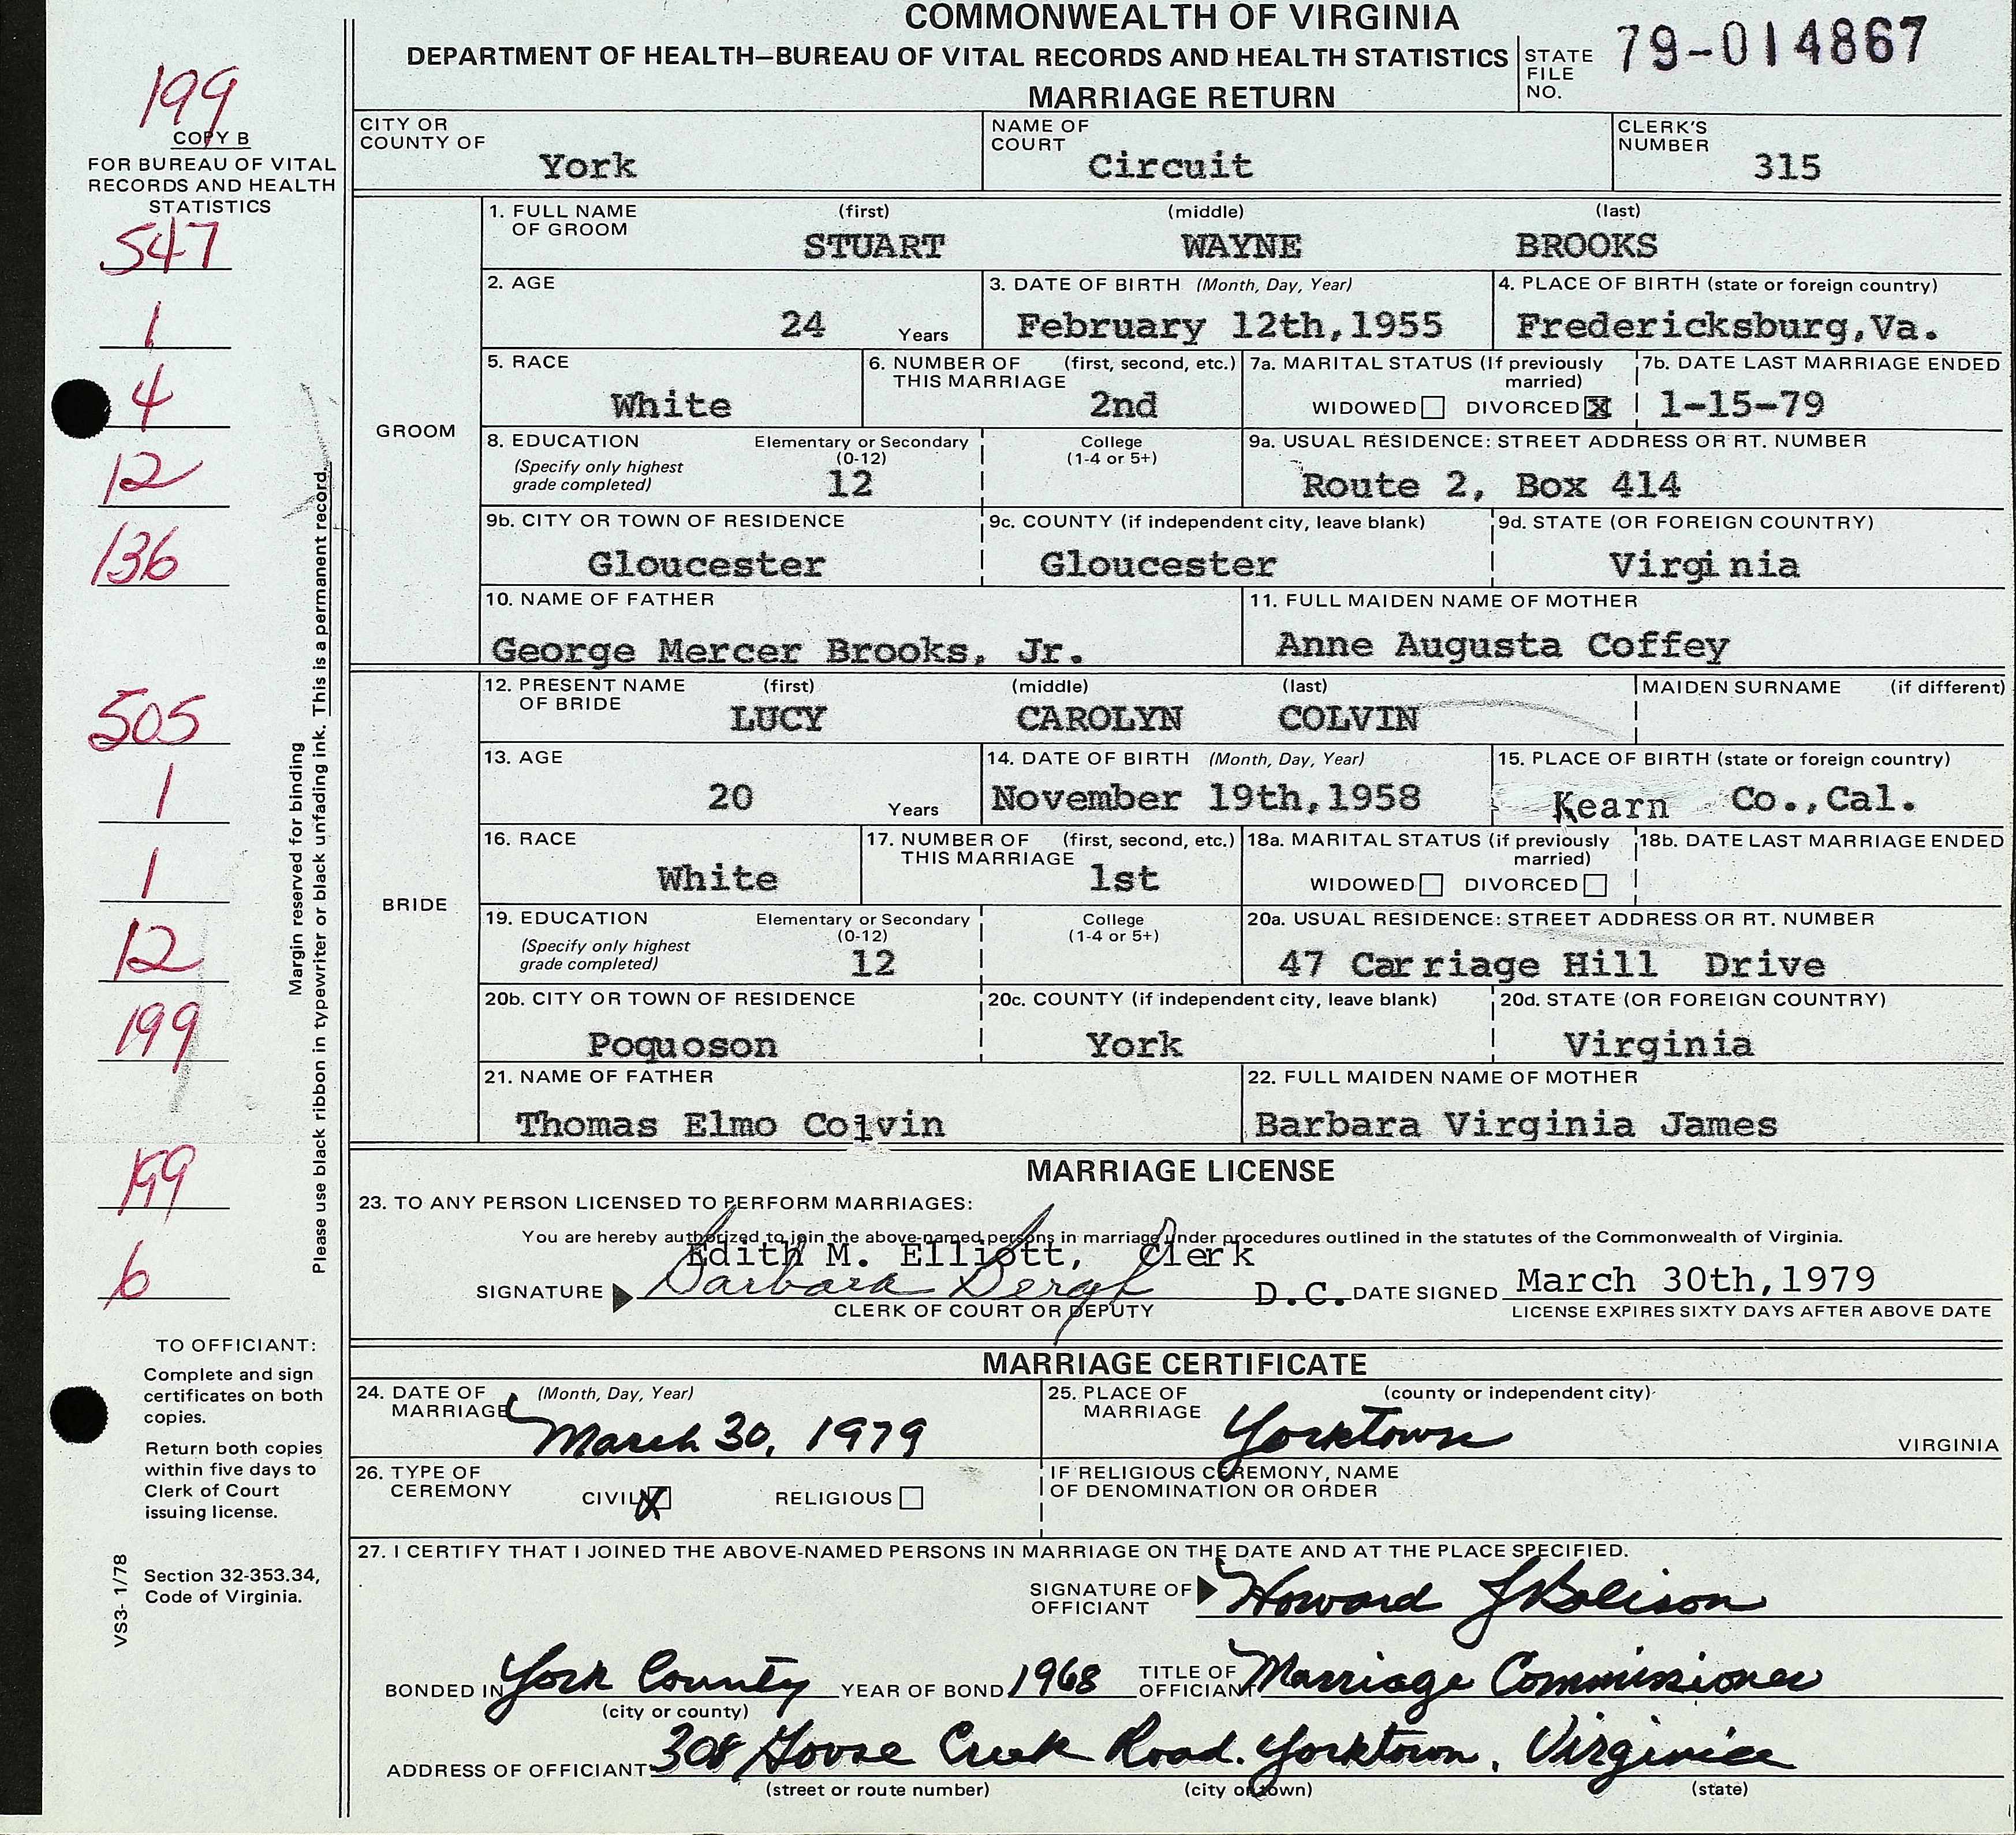 COMMONWEALTH OF VIRGINIA
DEPARTMENT OF HEALTH—BUREAU OF VITAL RECORDS AND HEALTH STATISTICS
MARRIAGE RETURN
STATE FILE NO. 79-014867
199
COPY B
FOR BUREAU OF VITAL
RECORDS AND HEALTH
STATISTICS
547
1
4
12
136
505
1
1
12
199
199
6
Margin reserved for binding
Please use black ribbon in typewriter or black unfading ink. This is a permanent record.
TO OFFICIANT:
Complete and sign
certificates on both
copies.
Return both copies
within five days to
Clerk of Court
issuing license.
Section 32-353.34,
Code of Virginia.
VS3- 1/78
CITY OR COUNTY OF York NAME OF COURT Circuit CLERK'S NUMBER 315
GROOM
1. FULL NAME OF GROOM (first) (middle) (last)
STUART WAYNE BROOKS
2. AGE 24 Years 3. DATE OF BIRTH (Month, Day, Year) February 12th,1955 4. PLACE OF BIRTH (state or foreign country) Fredericksburg,Va.
5. RACE White 6. NUMBER OF THIS MARRIAGE (first, second, etc.) 2nd 7a. MARITAL STATUS (If previously married) WIDOWED DIVORCED X 7b. DATE LAST MARRIAGE ENDED 1-15-79
8. EDUCATION (Specify only highest grade completed) Elementary or Secondary (0-12) 12 College (1-4 or 5+) 9a. USUAL RESIDENCE: STREET ADDRESS OR RT. NUMBER Route 2, Box 414
9b. CITY OR TOWN OF RESIDENCE Gloucester 9c. COUNTY (if independent city, leave blank) Gloucester 9d. STATE (OR FOREIGN COUNTRY) Virginia
10. NAME OF FATHER George Mercer Brooks, Jr. 11. FULL MAIDEN NAME OF MOTHER Anne Augusta Coffey
BRIDE
12. PRESENT NAME OF BRIDE (first) (middle) (last) MAIDEN SURNAME (if different)
LUCY CAROLYN COLVIN
13. AGE 20 Years 14. DATE OF BIRTH (Month, Day, Year) November 19th,1958 15. PLACE OF BIRTH (state or foreign country) Kearn Co.,Cal.
16. RACE White 17. NUMBER OF THIS MARRIAGE (first, second, etc.) 1st 18a. MARITAL STATUS (if previously married) WIDOWED DIVORCED 18b. DATE LAST MARRIAGE ENDED
19. EDUCATION (Specify only highest grade completed) Elementary or Secondary (0-12) 12 College (1-4 or 5+) 20a. USUAL RESIDENCE: STREET ADDRESS OR RT. NUMBER 47 Carriage Hill Drive
20b. CITY OR TOWN OF RESIDENCE Poquoson 20c. COUNTY (if independent city, leave blank) York 20d. STATE (OR FOREIGN COUNTRY) Virginia
21. NAME OF FATHER Thomas Elmo Colvin 22. FULL MAIDEN NAME OF MOTHER Barbara Virginia James
MARRIAGE LICENSE
23. TO ANY PERSON LICENSED TO PERFORM MARRIAGES:
You are hereby authorized to join the above-named persons in marriage under procedures outlined in the statutes of the Commonwealth of Virginia.
Edith M. Elliott, Clerk
SIGNATURE Barbara D.C. DATE SIGNED March 30th,1979
CLERK OF COURT OR DEPUTY LICENSE EXPIRES SIXTY DAYS AFTER ABOVE DATE
MARRIAGE CERTIFICATE
24. DATE OF MARRIAGE (Month, Day, Year) March 30, 1979 25. PLACE OF MARRIAGE (county or independent city) Yorktown VIRGINIA
26. TYPE OF CEREMONY CIVIL X RELIGIOUS IF RELIGIOUS CEREMONY, NAME OF DENOMINATION OR ORDER
27. I CERTIFY THAT I JOINED THE ABOVE-NAMED PERSONS IN MARRIAGE ON THE DATE AND AT THE PLACE SPECIFIED.
SIGNATURE OF OFFICIANT Howard
BONDED IN York County YEAR OF BOND 1968 TITLE OF OFFICIANT Marriage Commissioner
(city or county)
ADDRESS OF OFFICIANT 308 Goose Creek Road. Yorktown, Virginia
(street or route number) (city or town) (state)